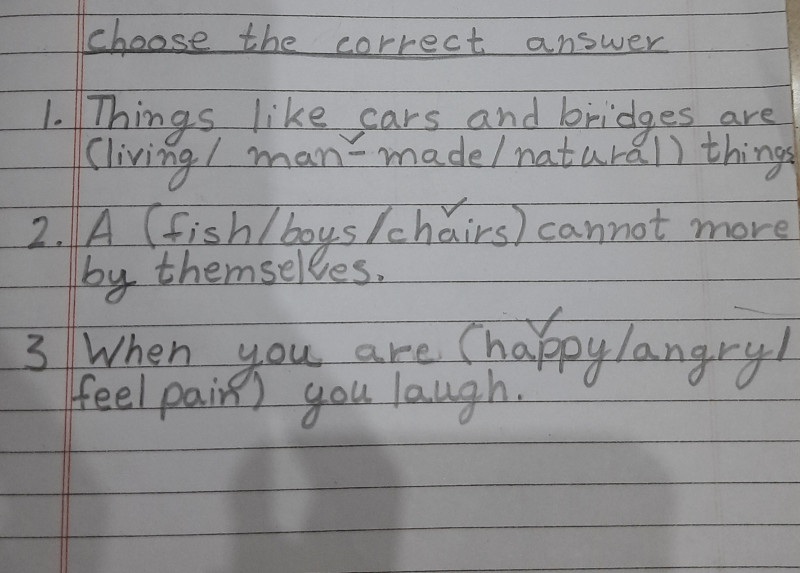 choose the correct answer
1. Things like cars and bridges are
(living/ man-made/natural) things
2. A (fish/boys/chairs) cannot more
by themselves.
3 When you are (happy/angry/
feel pain) you laugh.